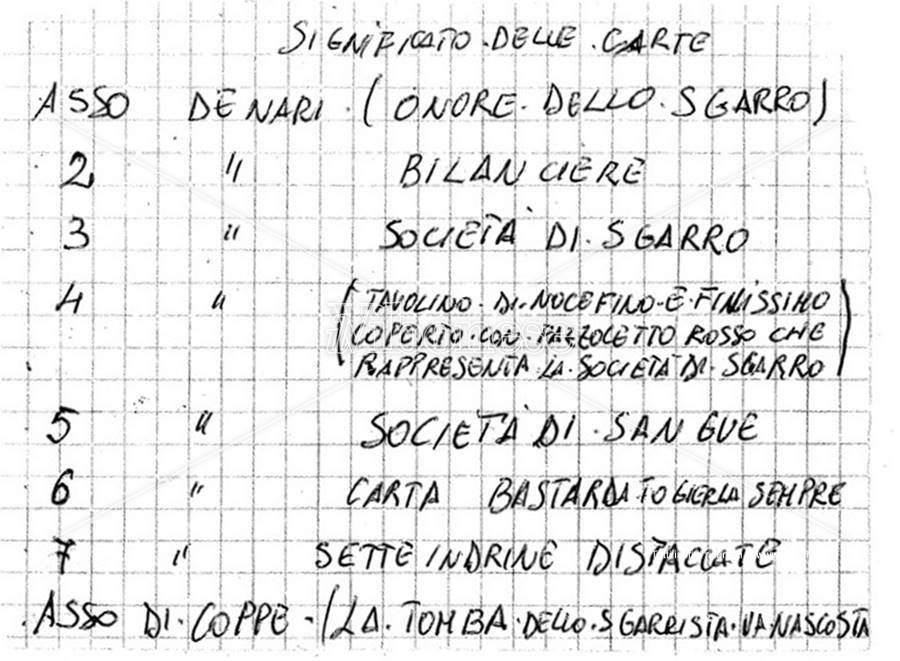 SIGNIFICATO·DELLE·CARTE
ASSO DENARI·(ONORE·DELLO·SGARRO)
2 " BILANCIERE
3 " SOCIETÀ DI·SGARRO
4 " (TAVOLINO·DI·NOCE FINO·E·FINISSIMO
COPERTO·CON·FAZZOLETTO ROSSO CHE
RAPPRESENTA·LA·SOCIETÀ·DI·SGARRO)
5 " SOCIETÀ DI·SANGUE
6 " CARTA BASTARDA·TOGIERLA SEMPRE
7 " SETTE INDRINE DISTACCATE
ASSO DI·COPPE·(LA·TOMBA·DELLO·SGARRISTA·VA·NASCOSTA